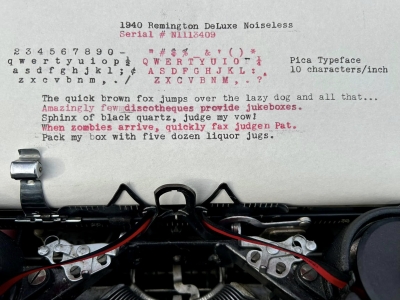 1940 Remington DeLuxe Noiseless
Serial # N1113409
2 3 4 5 6 7 8 9 0 - " # $ % & ' ( ) *
q w e r t y u i o p ½ Q W E R T Y U I O P ¼
a s d f g h j k l ; ¢ A S D F G H J K L :
z x c v b n m , . / Z X C V B N M , . ?
Pica Typeface
10 characters/inch
The quick brown fox jumps over the lazy dog and all that...
Amazingly few discotheques provide jukeboxes.
Sphinx of black quartz, judge my vow!
When zombies arrive, quickly fax judgen Pat.
Pack my box with five dozen liquor jugs.